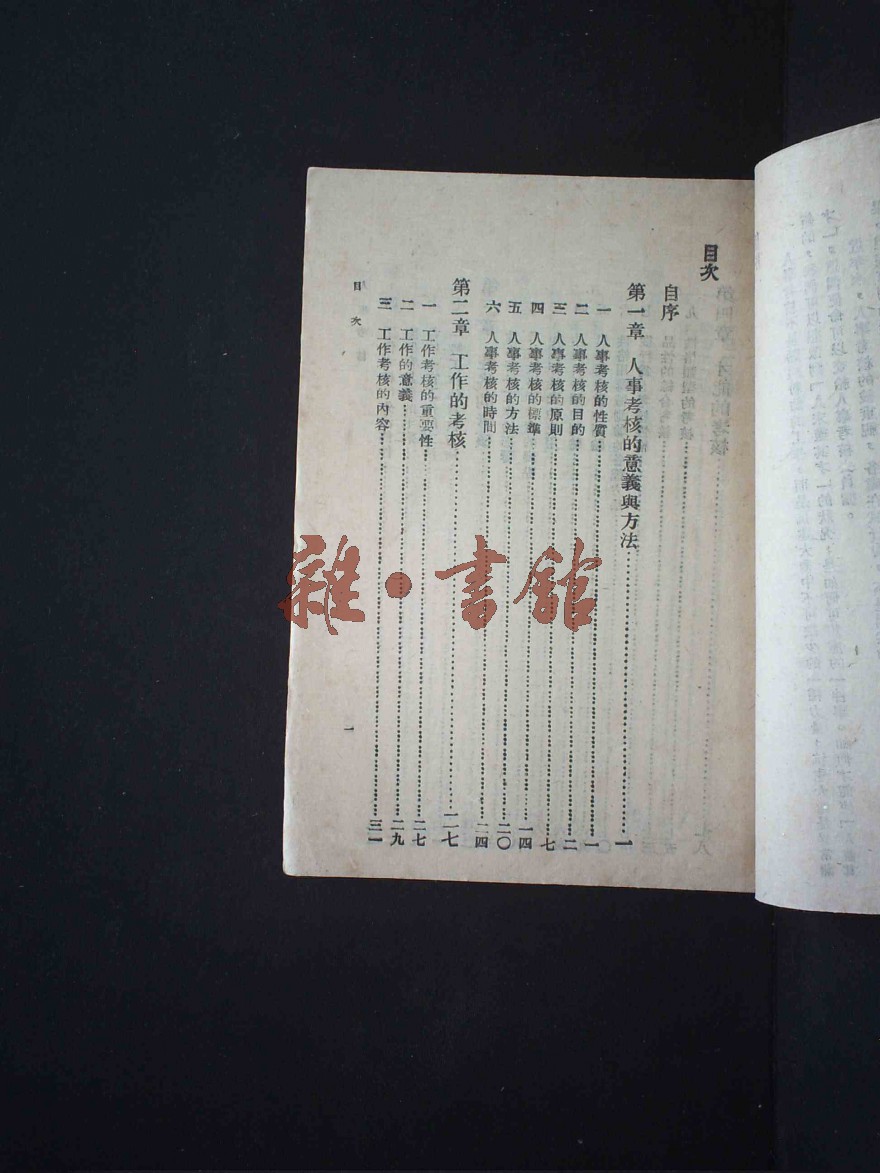 目次
自序
第一章 人事考核的意義與方法 一
一 人事考核的性質 一
二 人事考核的目的 二
三 人事考核的原則 七
四 人事考核的標準 一四
五 人事考核的方法 二〇
六 人事考核的時間 二四
第二章 工作的考核 二七
一 工作考核的重要性 二七
二 工作的意義 二九
三 工作考核的內容 三一
目次
一
雜·書館